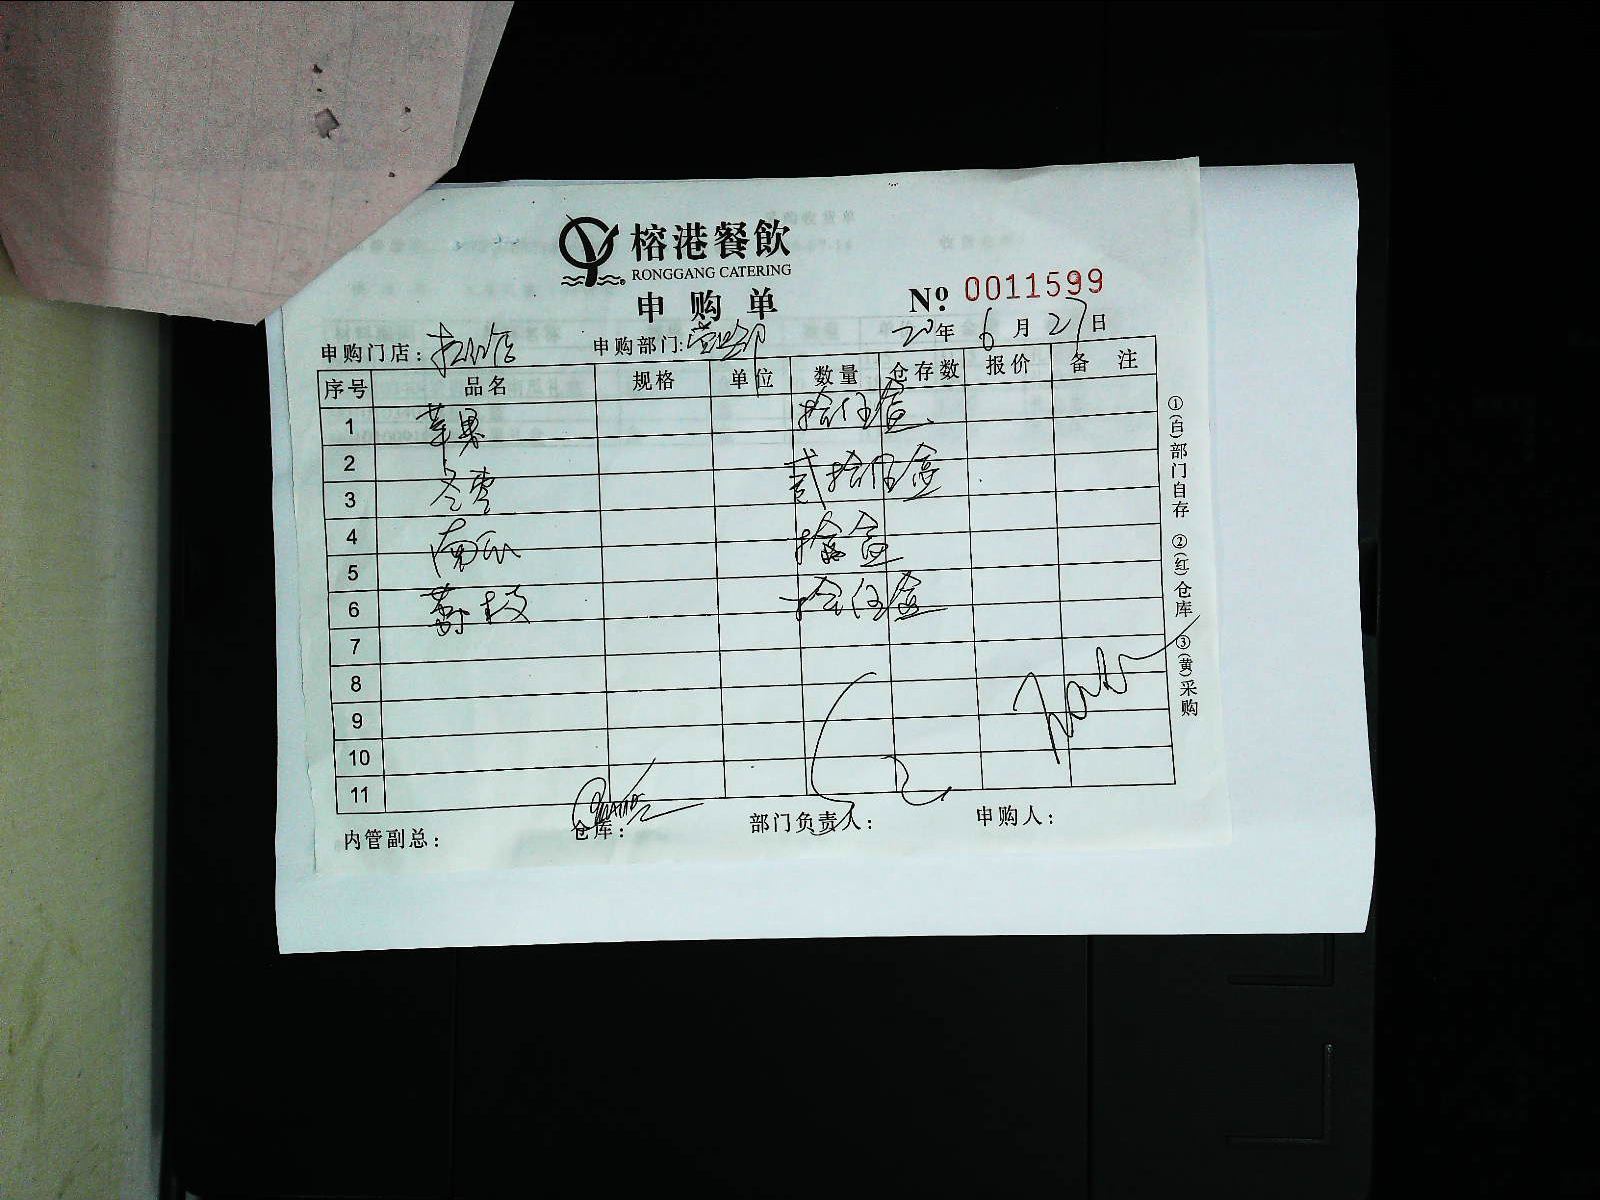 榕港餐飲
RONGGANG CATERING
申购单 Nº 0011599
申购门店： 申购部门:营业部 20年6月27日
序号 品名 规格 单位 数量 仓存数 报价 备注
1 苹果 拾伍盒
2
3 冬枣 贰拾伍盒
4 南瓜 拾盒
5
6 荔枝 拾伍盒
7
8
9
10
11
内管副总： 仓库： 部门负责人： 申购人：
①(白)部门自存 ②(红)仓库 ③(黄)采购